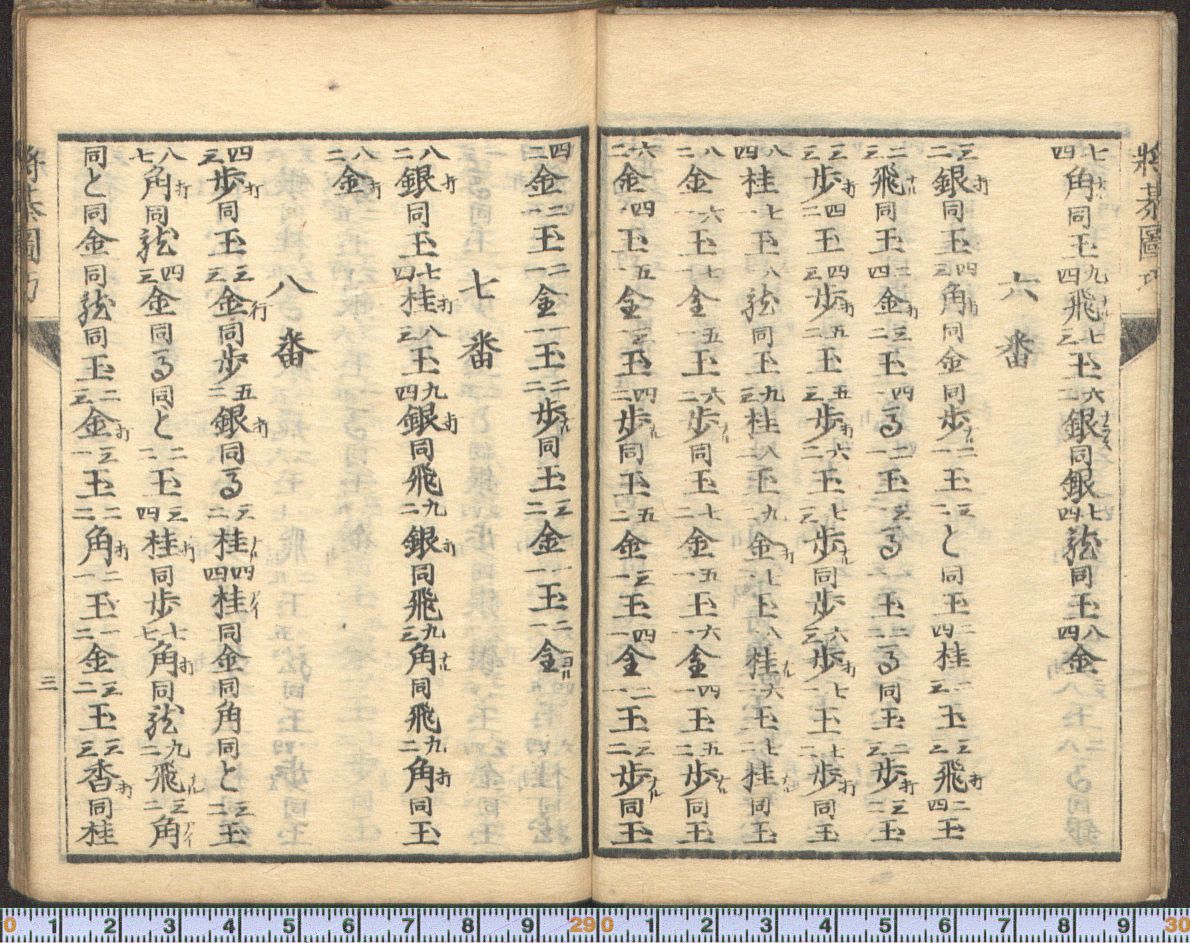 將棊圖巧
七四角打同玉九四飛打七三玉六二銀ナラス同銀七四龍同玉八四金
六番
三二銀打同玉四三角打同金同歩ナル二一玉三二と同玉二四桂一三玉三三飛打二四玉
二三飛ナル同玉二四金打三二玉四一馬二一玉三一馬一二玉二一馬同玉二三歩打三二玉
三三歩打四二玉四三歩打五二玉五三歩打六二玉七三歩ナル同歩六三歩打七一玉七二歩打同玉
八四桂七一玉八一龍同玉九三桂八一玉九一金打七一玉八一桂ナル六一玉七二桂ナル同玉
八二金六一玉七一金五一玉六二歩ナル同玉七二金五一玉六一金四一玉五二歩ナル同玉
六二金四一玉五一金三一玉四二歩ナル同玉五二金三一玉四一金二一玉三二歩ナル同玉
四二金二一玉三一金一一玉二二歩ナル同玉三二金一一玉二一金ヨル
七番
八二銀打同玉七四桂打八三玉九四銀打同飛九二銀打同飛九三角ナル同飛九二角打同玉
八二金打
八番
四三歩打同玉三三金行同歩五二銀打同馬三二桂ナル四四桂アイ同金同角同と三二玉
八七角打同龍四三金同馬同と二一玉三四桂打同歩七七角打同龍九二飛ナル三二角アイ
同と同金同龍同玉二三金打三一玉二二角打二一玉一二金三二玉三三香打同桂
將棊圖巧
三